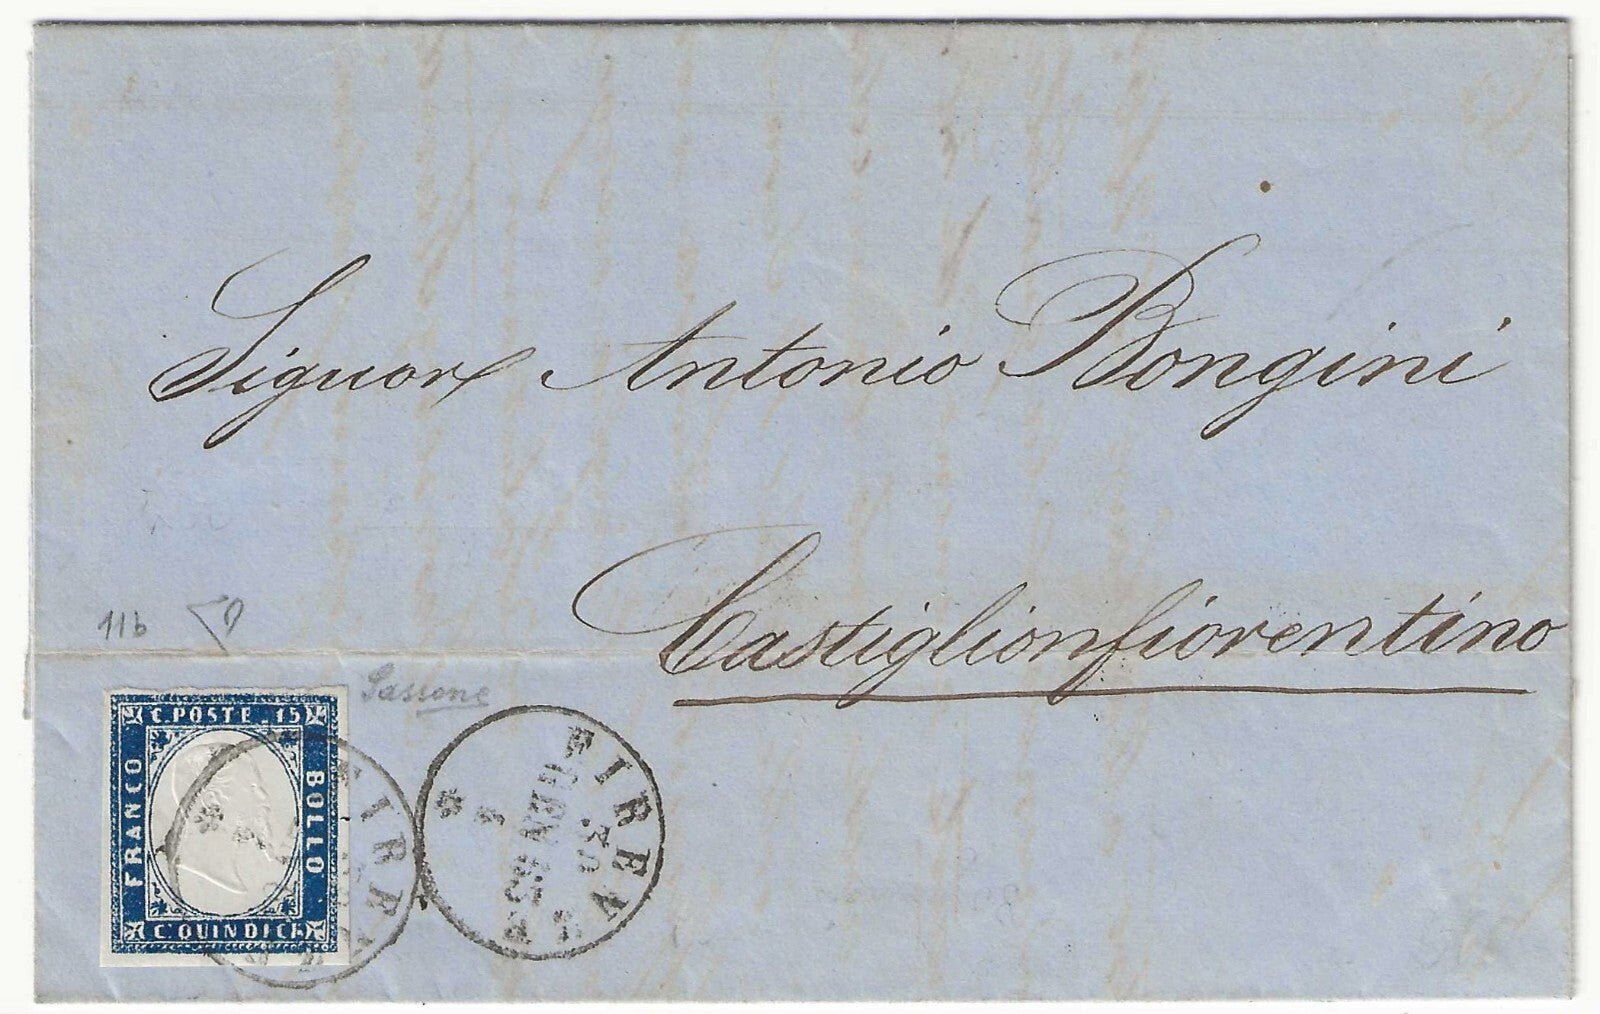 Signor Antonio Bongini
Castiglionfiorentino
11b
Sassone
C. POSTE. 15
FRANCO
BOLLO
C. QUINDICI
FIRENZE
FIRENZE
GEN